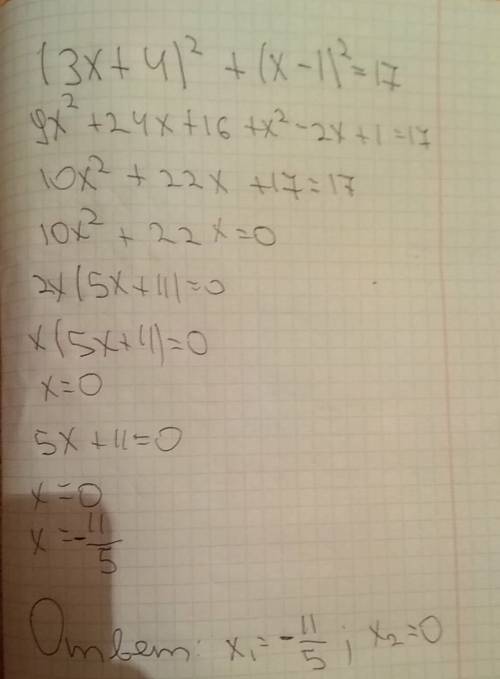 (3x+4)² + (x-1)² = 17
9x² + 24x + 16 + x² - 2x + 1 = 17
10x² + 22x + 17 = 17
10x² + 22x = 0
2x(5x+11) = 0
x(5x+11) = 0
x = 0
5x + 11 = 0
x = 0
x = -11/5
Ответ: x₁ = -11/5; x₂ = 0